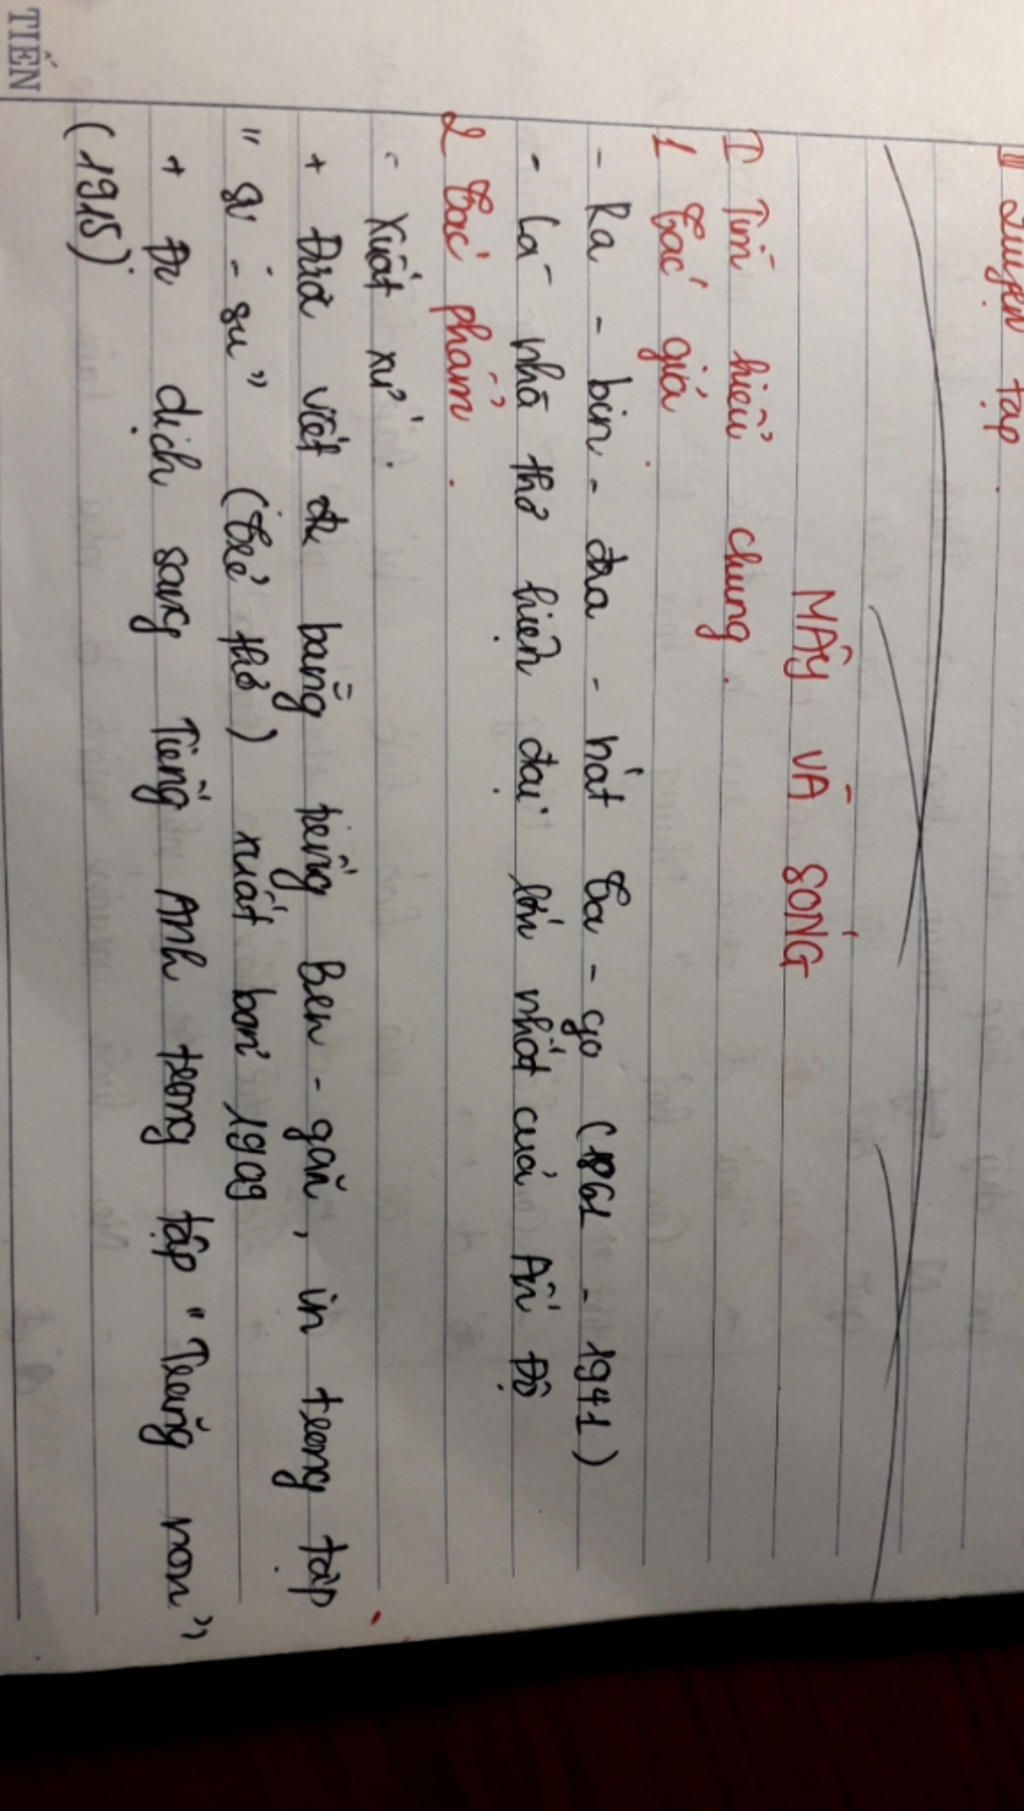 III Luyện tập.
MÂY VÀ SÓNG
I Tìm hiểu chung.
1 Tác giả.
- Ra - bin - đra - nát Ta - go (1861 - 1941)
- Là nhà thơ hiện đại lớn nhất của Ấn Độ
2 Tác phẩm.
- Xuất xứ.
+ Được viết bằng tiếng Ben - gan, in trong tập
" Si - su" (Trẻ thơ) xuất bản 1909
+ dịch sang Tiếng Anh trong tập "Trăng non"
(1915)
TIẾN